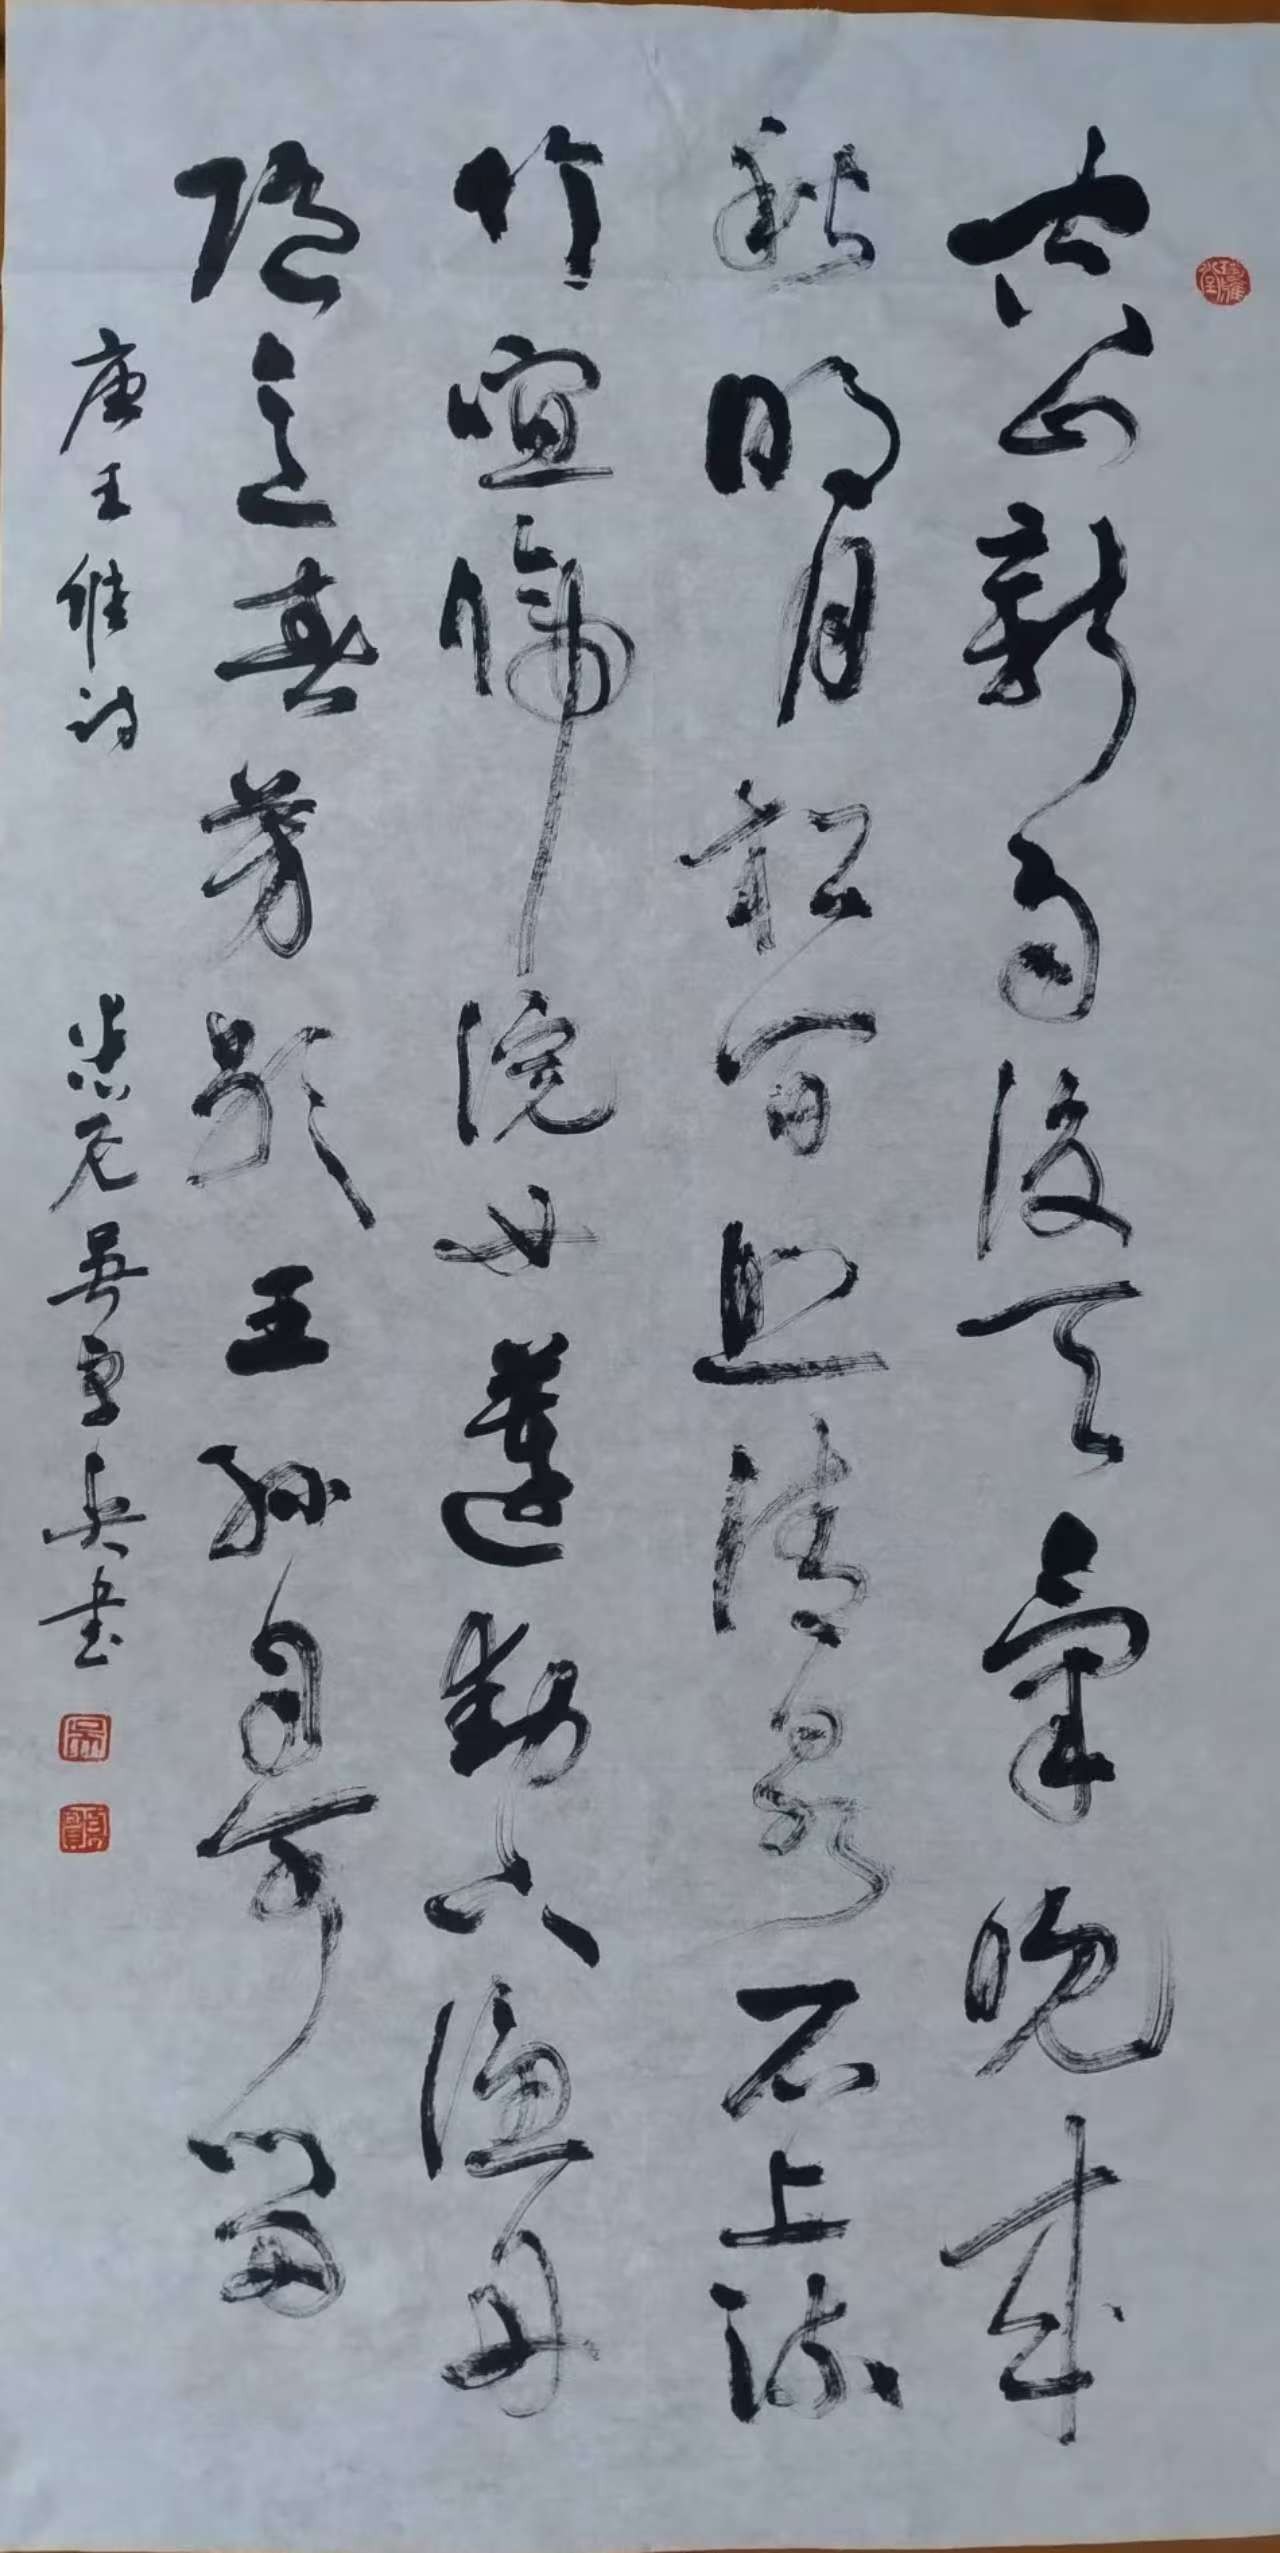 空山新雨後天氣晚來
秋明月松間照清泉石上流
竹喧歸浣女蓮動下漁舟
隨意春芳歇王孫自可留
唐王維詩
吳 书